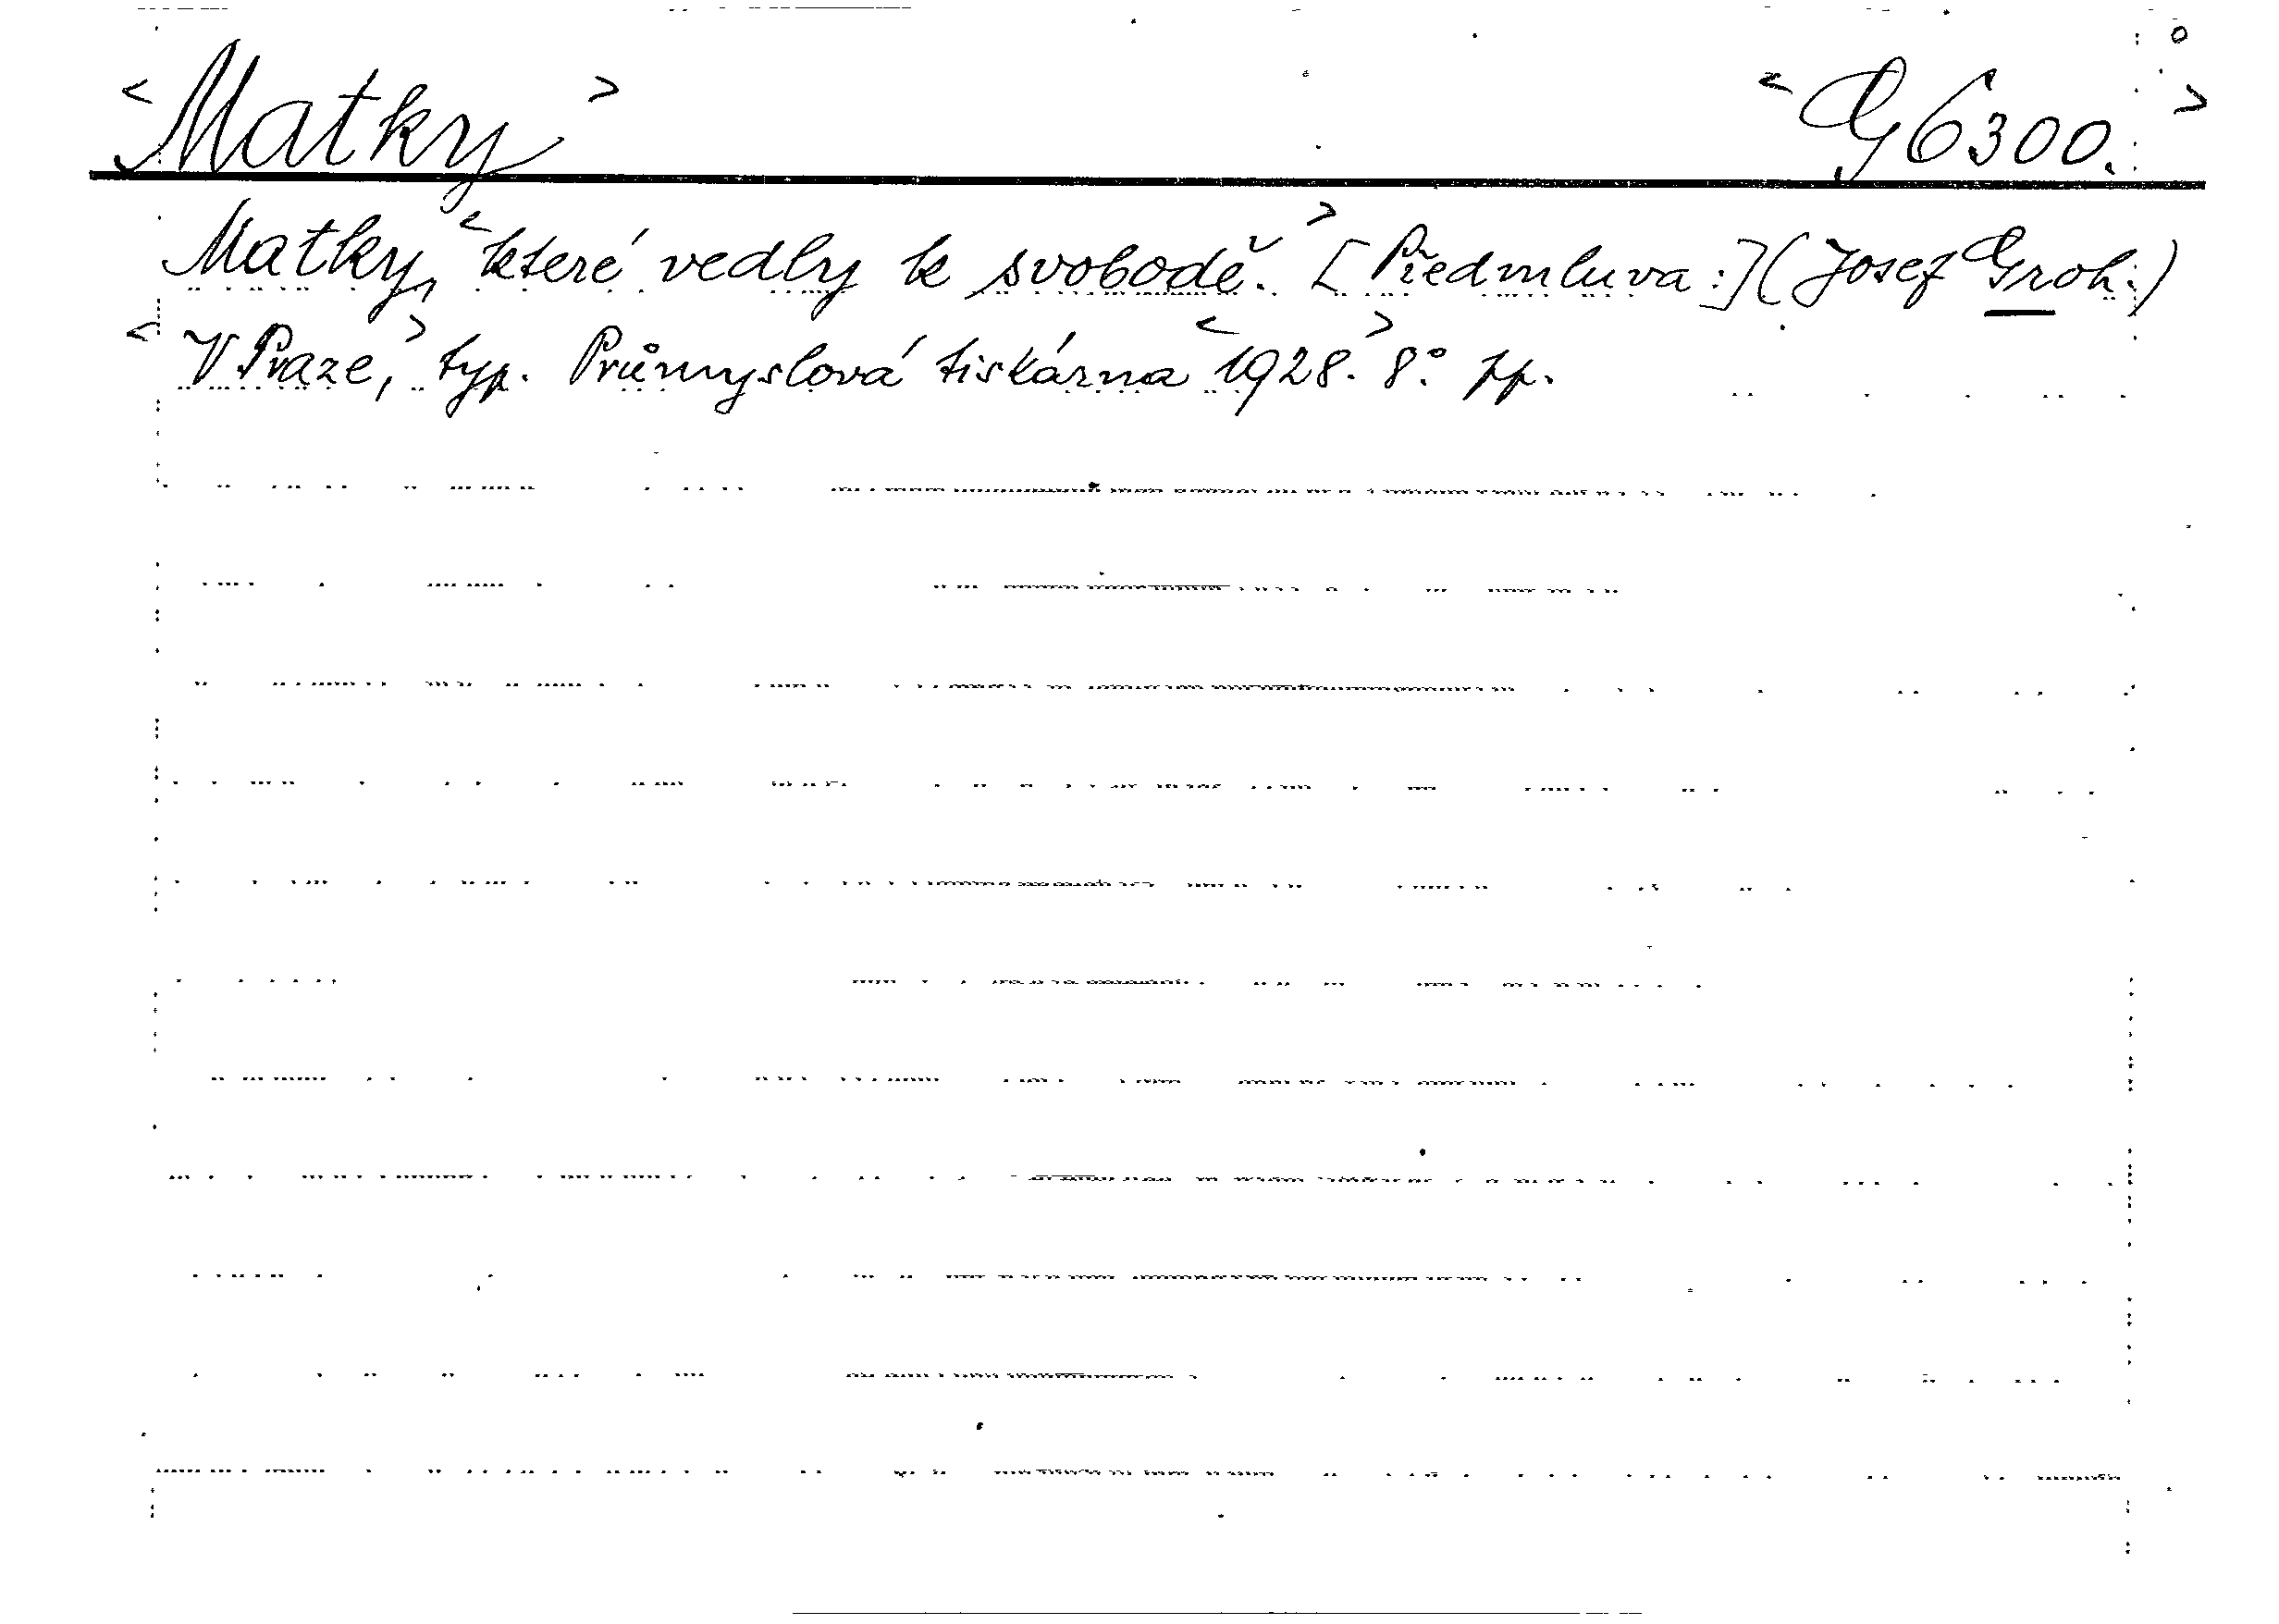 <Matky> <G 6300.>
Matky, <které vedly k svobodě.> [Předmluva:] (Josef Groh.)
<V Praze,> typ. Průmyslová tiskárna <1928.> 8° pp.